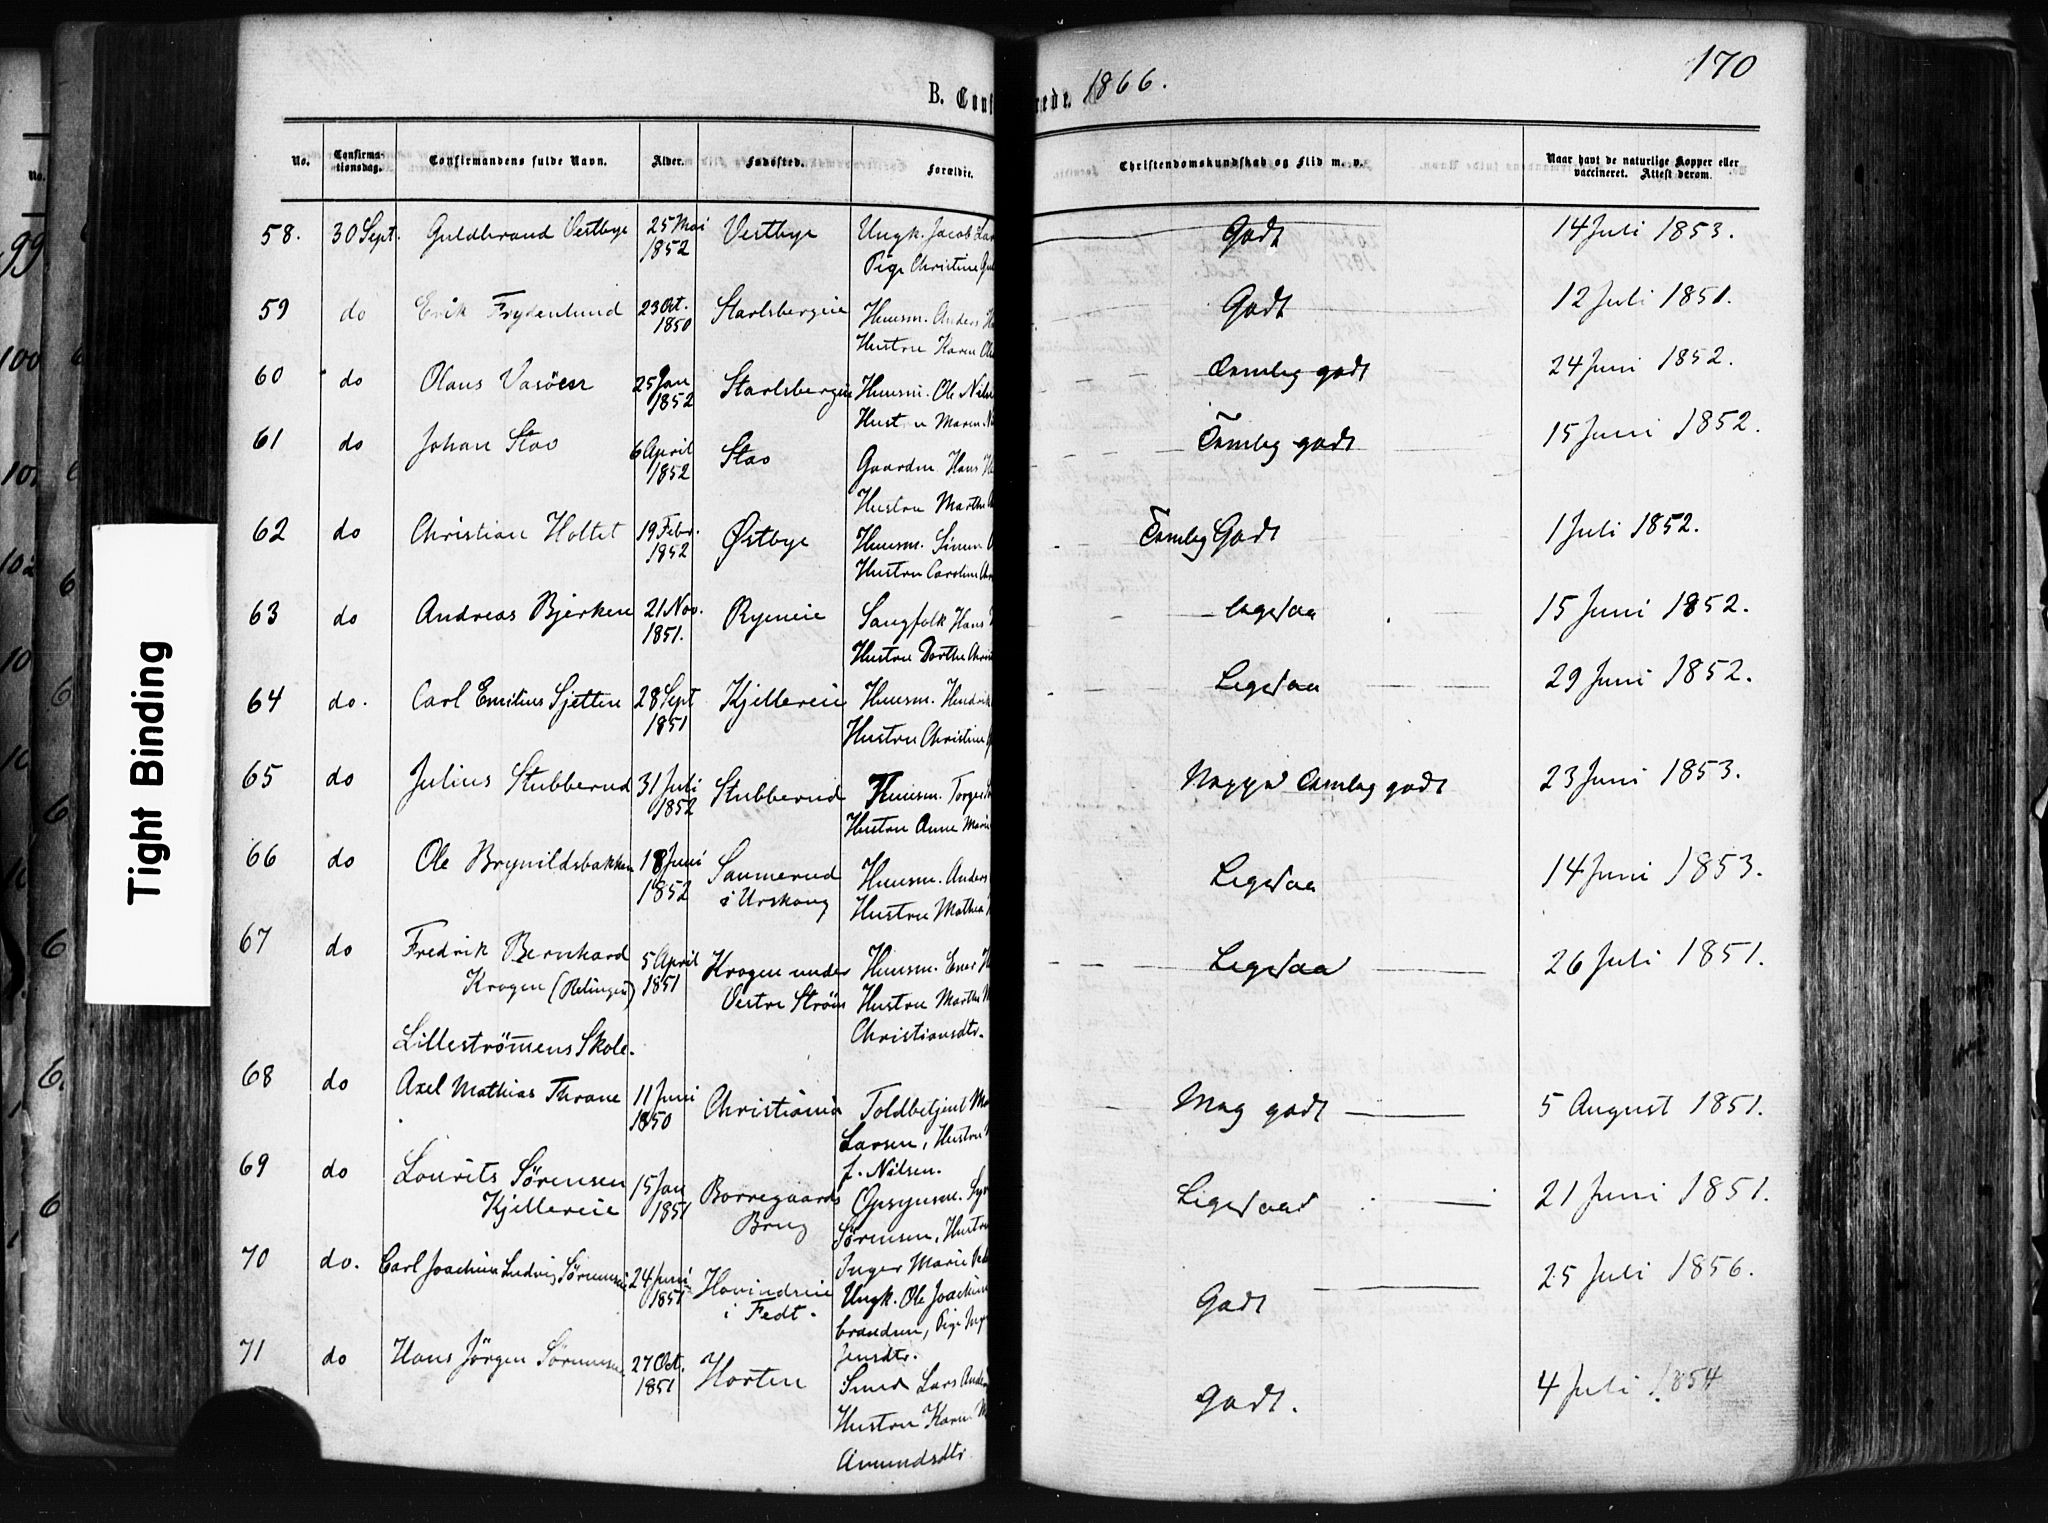 170
B. Conf
rede. 1866.
No.
Confirma-
tionsdag.
Confirmandens fulde Navn.
Alder.
Fødested.
Forældre.
Christendomskundskab og Flid m. v.
Naar havt de naturlige Kopper eller
vaccineret. Attest derom.
58. 30 Sept. Guldbrand Vestbye 25 Mai Vestbye Ungk. Jacob Lar Godt 14 Juli 1853.
1852 Pige Christine Gul
59 do Erik Frydenlund 23 Oct. Starlsbergeie Huusm. Anders Godt 12 Juli 1851.
1850 Hustru Karen Ole
60 do Olaus Vasöen 25 Jan Starlsbergeie Huusm. Ole Nils Temlig godt 24 Juni 1852.
1852 Hustru Maren
61 do Johan Stav 6 April Stav Gaardm Hans Temlig godt 15 Juni 1852.
1852 Hustru Marthe
62 do Christian Holtet 19 Febr. Østbye Huusm. Simen Temlig Godt 1 Juli 1852.
1852 Hustru Caroline
63 do Andreas Bjerken 21 Nov. Ryeneie Saugfolk Hans Ligesaa 15 Juni 1852.
1851. Hustru Dorthe Chri
64 do. Carl Emilius Sjetten 28 Sept Kjellereie Huusm. Hendrik Ligesaa 29 Juni 1852.
1851 Hustru Christine
65 do Julius Stubberud 31 Juli Stubberud Huusm. Torger Neppe Temlig godt 23 Juni 1853.
1852 Hustru Anne Marie
66 do Ole Brynildsbakken 18 Juni Saumerud Huusm. Anders Ligesaa 14 Juni 1853.
1852 i Urskoug Hustru Mathea
67 do Fredrik Bernhard 5 April Krogen under Huusm. Ener Ligesaa 26 Juli 1851.
Krogen (Relingen) 1851 Vestre Ström Hustru Marthe
Christiansdtr.
Lilleströmmens Skole.
68 do Axel Mathias Thrane 11 Juni Christiania Toldbetjent Meg godt 5 August 1851.
1850 Larsen, Hustru
f. Nilsen.
69 do Lourits Sörensen 15 Jan Borregaards Opsynsm. Ligesaa 21 Juni 1851.
Kjellereie 1851 Brug Sörensen, Hustru
Inger Marie
70 do. Carl Joachim Ludvig Sörensen 24 Juni Hovindseie Ungk. Ole Joachim Godt 25 Juli 1856.
1851 i Fedt. brandsen, Pige Ing
Jensdtr.
71 do Hans Jörgen Sörensen 27 Oct. Horten Smed Lars Ander Godt. 4 Juli 1854
1851 Hustru Karen
Amundsdtr
Tight Binding